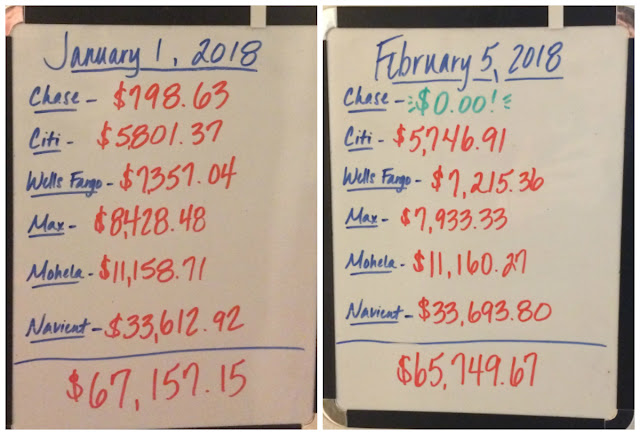 January 1, 2018
Chase - $798.63
Citi - $5801.37
Wells Fargo - $7,357.04
Max - $8,428.48
Mohela - $11,158.71
Navient - $33,612.92
$67,157.15
February 5, 2018
Chase - $0.00!
Citi - $5,746.91
Wells Fargo - $7,215.36
Max - $7,933.33
Mohela - $11,160.27
Navient - $33,693.80
$65,749.67